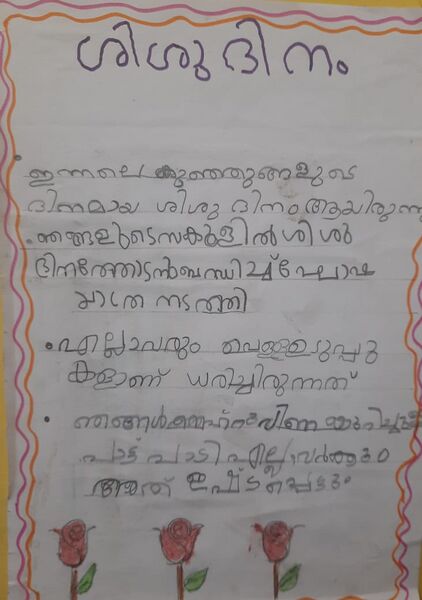 ശിശുദിനം
ഇന്നലെ കുഞ്ഞുങ്ങളുടെ
ദിനമായ ശിശു ദിനം ആയിരുന്നു
ഞങ്ങളുടെ സകൂളിൽ ശിശു
ദിനത്തോടൻബന്ധിച്ച് ഘോഷ
യാത്ര നടത്തി
എല്ലാവരും വെള്ള ഉടുപ്പു
കളാണ് ധരിച്ചിരുന്നത്
ഞങ്ങൾ
പാട്ട് പാടി എല്ലാവർക്കും
അത് ഇഷ്ടപ്പെട്ടു